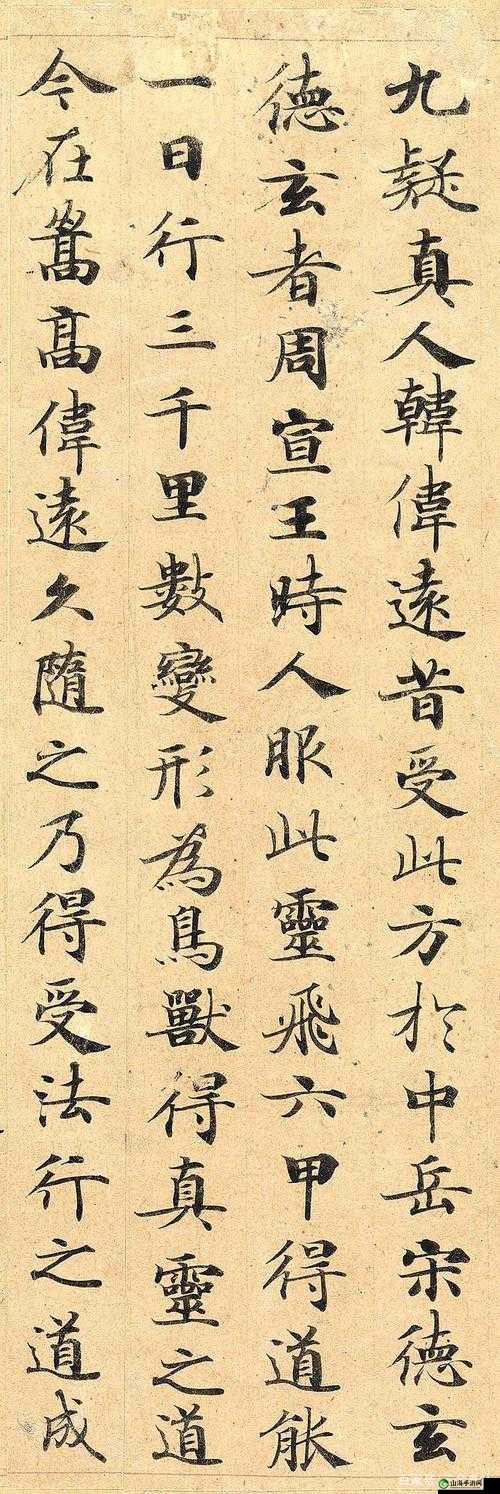 九疑真人韓偉遠昔受此方於中岳宋德玄
德玄者周宣王時人服此靈飛六甲得道能
一日行三千里數變形為鳥獸得真靈之道
今在嵩高偉遠久隨之乃得受法行之道成